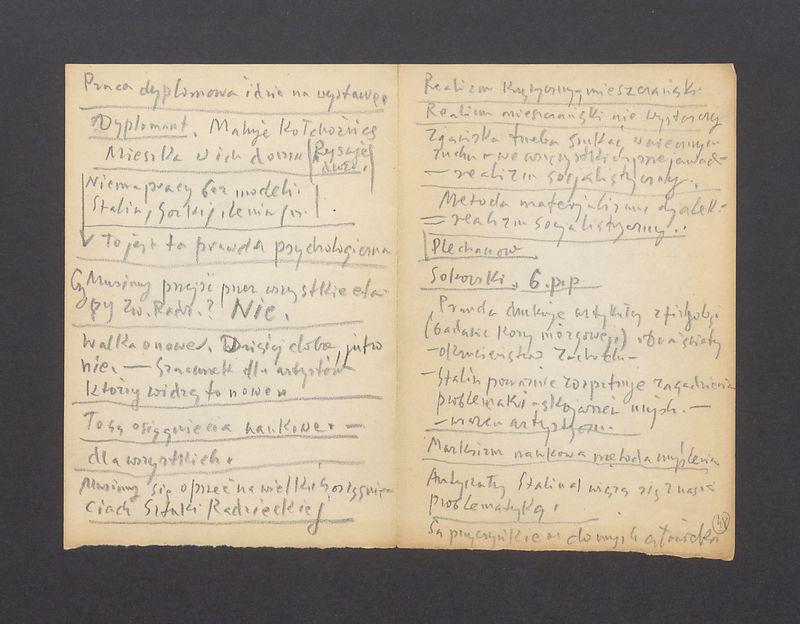 Praca dyplomowa idzie na wystawę.
Dyplomant. Maluje Kołchoźnicę
Mieszka w ich domu Rysuje
dużo.
Niema pracy bez modeli.
Stalin, Gorkij, Lenin
To jest ta prawda psychologiczna
Czy Musimy przejść przez wszystkie eta-
py Zw. Radz.? Nie.
Walka o nowe. Dzisiaj dobre, jutro
nie. — Szacunek dla artystów
którzy widzą to nowe
To są osiągnięcia naukowe. —
dla wszystkich.
Musimy się oprzeć na wielkich osiągnię-
ciach Sztuki Radzieckiej
Realizm Krytyczny, mieszczański.
Realizm mieszczański nie wystarczy
Zjawiska trzeba szukać w wiecznym
ruchu we wszystkich przejawach
— realizm socjalistyczny.
Metoda materializmu dialek.
= realizm socjalistyczny.
Plechanow
Sokorski. 6. pp
Prawda drukuje artykuły z fizjologi
(badanie kory mózgowej)
— okrucieństwo Zachodu —
— Stalin poważnie rozpatruje zagadnienia
problematyki
Marksizm naukowa metoda myślenia
Artykuły Stalina wiążą się z naszą
problematyką.
Są przyczynkiem do